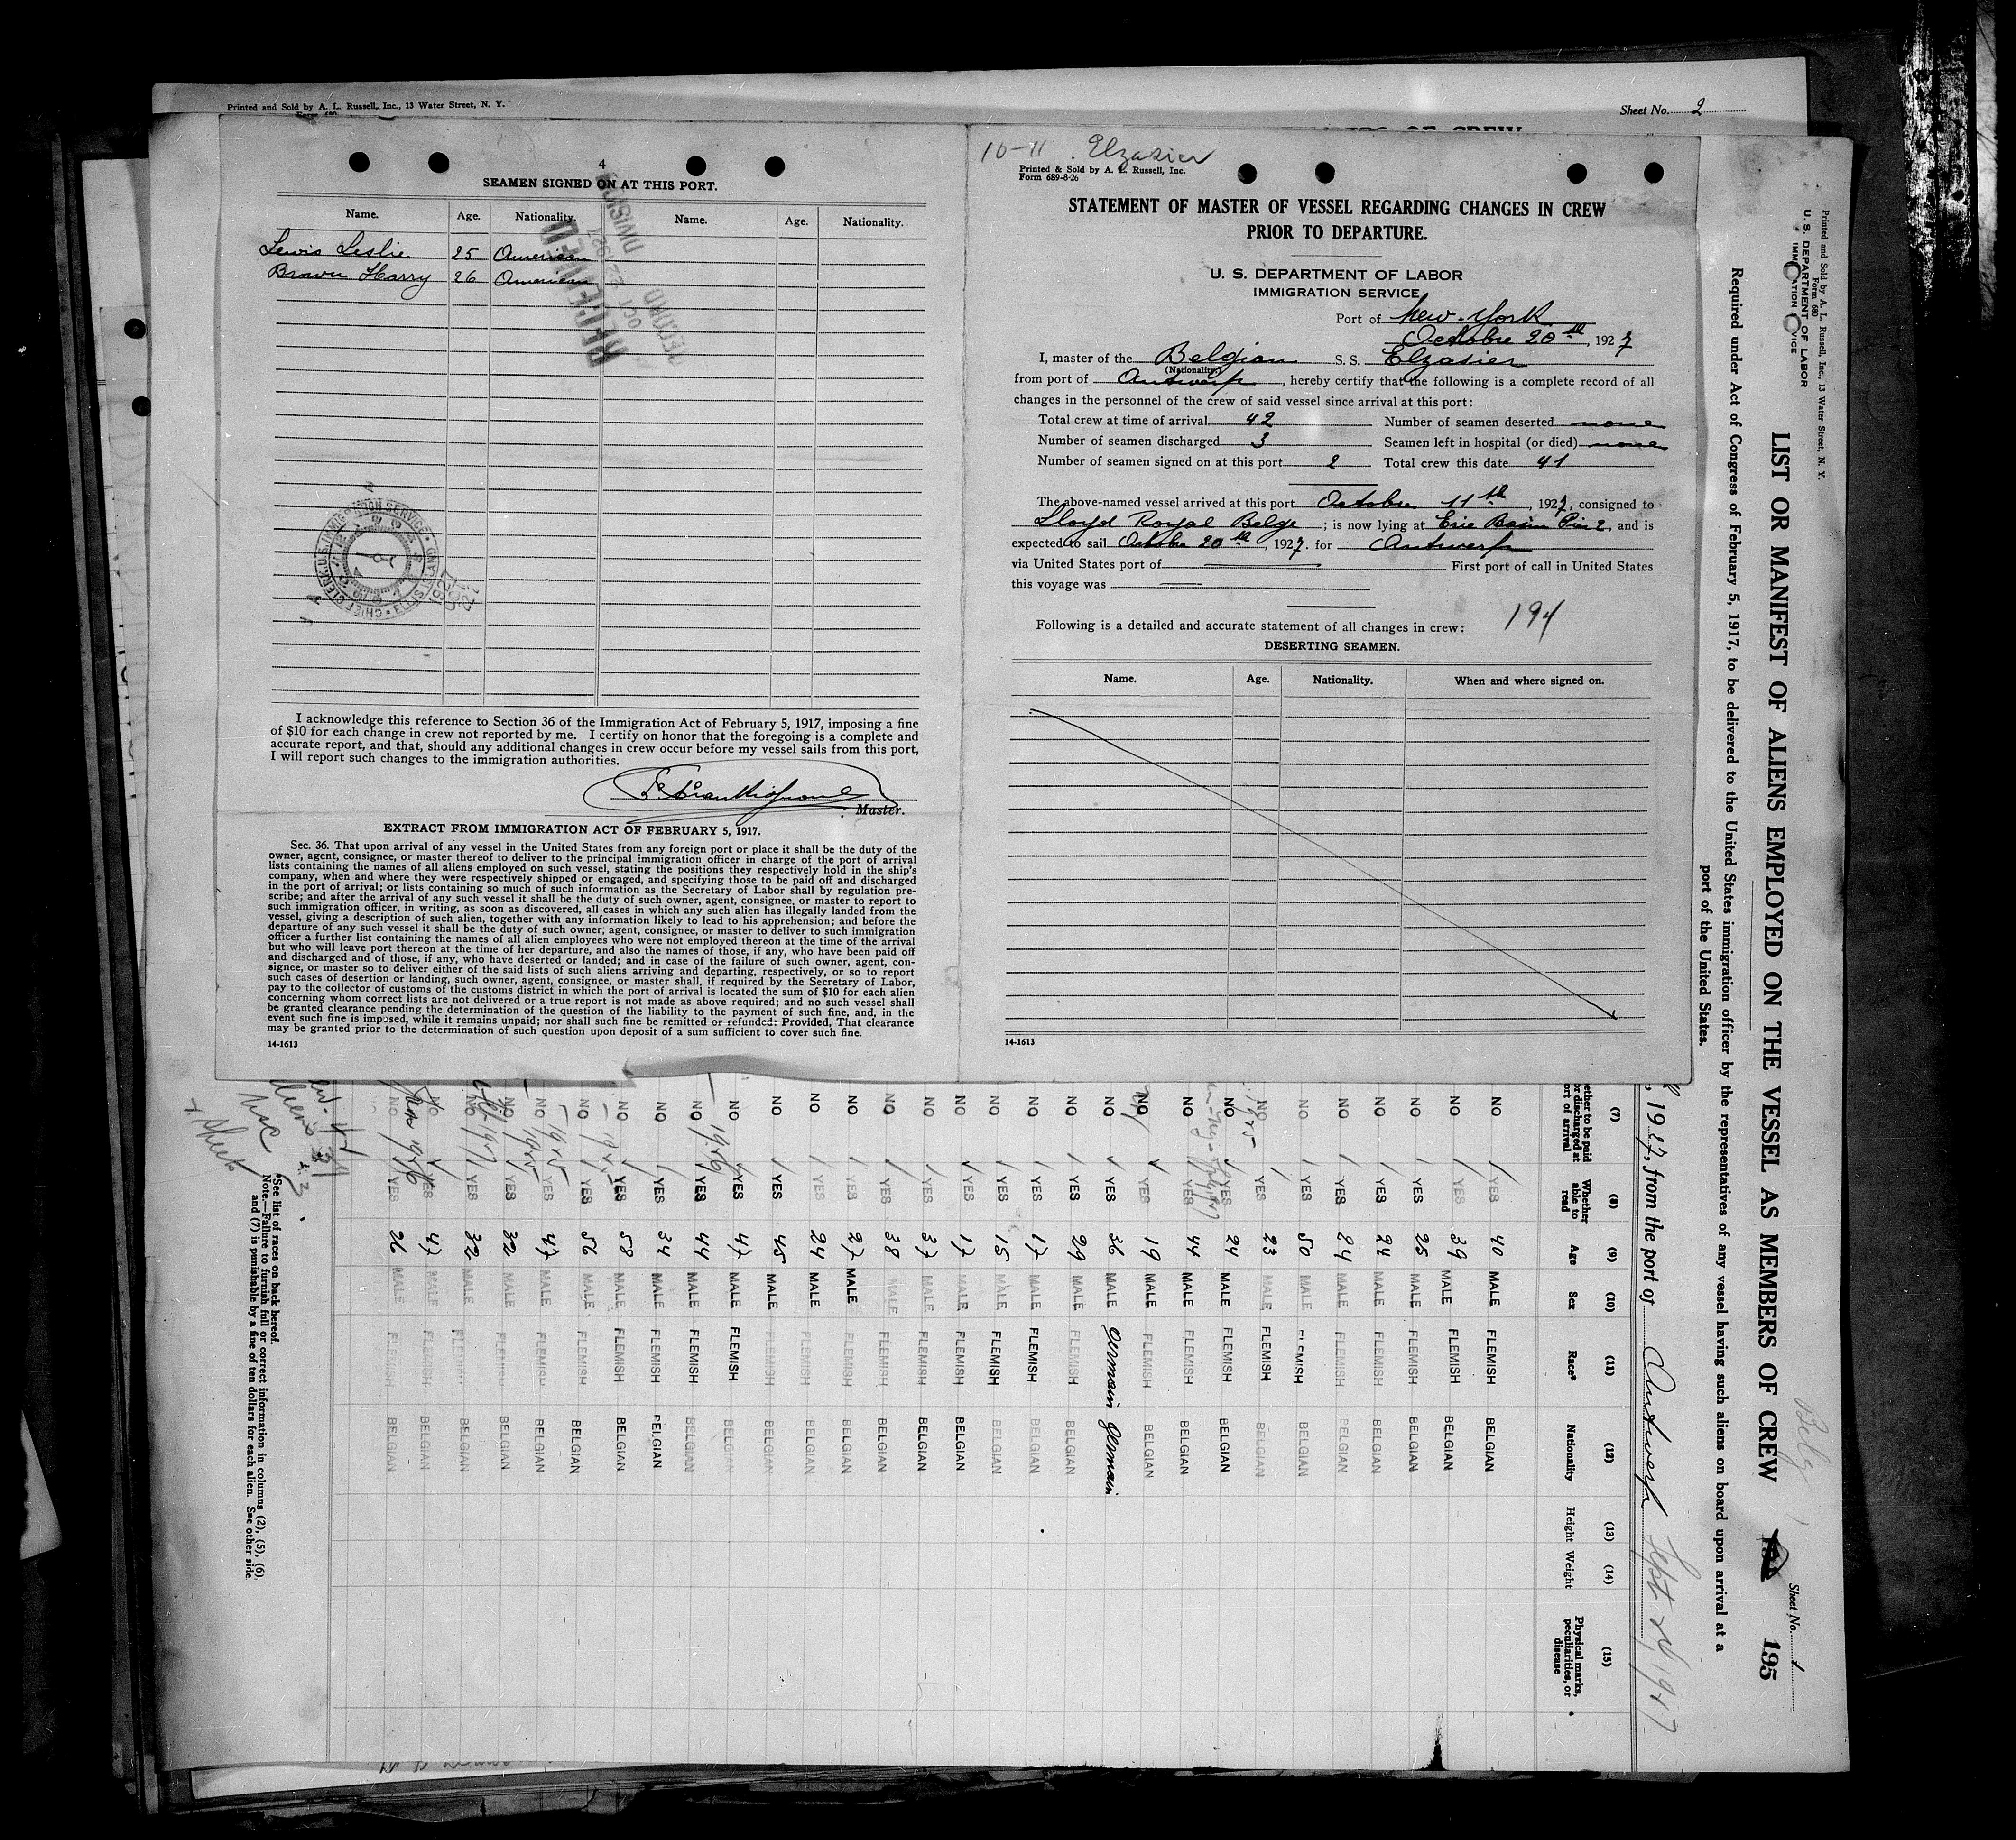 Printed and Sold by A. L. Russell, Inc., 13 Water Street, N. Y.
Sheet No. 2
4
SEAMEN SIGNED ON AT THIS PORT.
Name. Age. Nationality. Name. Age. Nationality.
Lewis Leslie 25 American
Brown Harry 26 American
RECEIVED
OCT 22 1927
RECORD DIVISION
I acknowledge this reference to Section 36 of the Immigration Act of February 5, 1917, imposing a fine
of $10 for each change in crew not reported by me. I certify on honor that the foregoing is a complete and
accurate report, and that, should any additional changes in crew occur before my vessel sails from this port,
I will report such changes to the immigration authorities.
Master.
EXTRACT FROM IMMIGRATION ACT OF FEBRUARY 5, 1917.
Sec. 36. That upon arrival of any vessel in the United States from any foreign port or place it shall be the duty of the
owner, agent, consignee, or master thereof to deliver to the principal immigration officer in charge of the port of arrival
lists containing the names of all aliens employed on such vessel, stating the positions they respectively hold in the ship's
company, when and where they were respectively shipped or engaged, and specifying those to be paid off and discharged
in the port of arrival; or lists containing so much of such information as the Secretary of Labor shall by regulation pre-
scribe; and after the arrival of any such vessel it shall be the duty of such owner, agent, consignee, or master to report to
such immigration officer, in writing, as soon as discovered, all cases in which any such alien has illegally landed from the
vessel, giving a description of such alien, together with any information likely to lead to his apprehension; and before the
departure of any such vessel it shall be the duty of such owner, agent, consignee, or master to deliver to such immigration
officer a further list containing the names of all alien employees who were not employed thereon at the time of the arrival
but who will leave port thereon at the time of her departure, and also the names of those, if any, who have been paid off
and discharged and of those, if any, who have deserted or landed; and in case of the failure of such owner, agent, con-
signee, or master so to deliver either of the said lists of such aliens arriving and departing, respectively, or so to report
such cases of desertion or landing, such owner, agent, consignee, or master shall, if required by the Secretary of Labor,
pay to the collector of customs of the customs district in which the port of arrival is located the sum of $10 for each alien
concerning whom correct lists are not delivered or a true report is not made as above required; and no such vessel shall
be granted clearance pending the determination of the question of the liability to the payment of such fine, and, in the
event such fine is imposed, while it remains unpaid; nor shall such fine be remitted or refunded: Provided, That clearance
may be granted prior to the determination of such question upon deposit of a sum sufficient to cover such fine.
14-1613
10-11 Elzasier
Printed & Sold by A. L. Russell, Inc.
Form 689-8-26
STATEMENT OF MASTER OF VESSEL REGARDING CHANGES IN CREW
PRIOR TO DEPARTURE.
U. S. DEPARTMENT OF LABOR
IMMIGRATION SERVICE
Port of New-York
Octobre 20th, 1927
I, master of the Belgian S. S. Elzasier
(Nationality)
from port of Antwerp, hereby certify that the following is a complete record of all
changes in the personnel of the crew of said vessel since arrival at this port:
Total crew at time of arrival 42 Number of seamen deserted none
Number of seamen discharged 3 Seamen left in hospital (or died) none
Number of seamen signed on at this port 2 Total crew this date 41
The above-named vessel arrived at this port October 11th, 1927, consigned to
Lloyd Royal Belge; is now lying at Erie Basin Pier 2, and is
expected to sail Octobre 20th, 1927. for Antwerp
via United States port of First port of call in United States
this voyage was
Following is a detailed and accurate statement of all changes in crew: 194
DESERTING SEAMEN.
Name. Age. Nationality. When and where signed on.
14-1613
Printed and Sold by A. L. Russell, Inc., 13 Water Street, N. Y.
Form 680
U. S. DEPARTMENT OF LABOR
Sheet No. 1
LIST OR MANIFEST OF ALIENS EMPLOYED ON THE VESSEL AS MEMBERS OF CREW 195
Belg
Required under Act of Congress of February 5, 1917, to be delivered to the United States immigration officer by the representatives of any vessel having such aliens on board upon arrival at a
port of the United States.
, 1927, from the port of Antwerp Sept 24 1927
(7) (8) (9) (10) (11) (12) (13) (14) (15)
Whether able to read Age Sex Race* Nationality Height Weight Physical marks, peculiarities, or disease
NO YES 40 MALE FLEMISH BELGIAN
NO YES 39 MALE FLEMISH BELGIAN
NO YES 25 MALE FLEMISH BELGIAN
NO YES 24 MALE FLEMISH BELGIAN
NO YES 24 MALE FLEMISH BELGIAN
NO YES 50 MALE FLEMISH BELGIAN
NO YES 23 MALE FLEMISH BELGIAN
NO YES 24 MALE FLEMISH BELGIAN
NO YES 44 MALE FLEMISH BELGIAN
NO YES 19 MALE FLEMISH BELGIAN
NO YES 36 MALE Germain Germain
NO YES 29 MALE FLEMISH BELGIAN
NO YES 17 MALE FLEMISH BELGIAN
NO YES 15 MALE FLEMISH BELGIAN
NO YES 17 MALE FLEMISH BELGIAN
NO YES 37 MALE FLEMISH BELGIAN
NO YES 38 MALE FLEMISH BELGIAN
NO YES 27 MALE FLEMISH BELGIAN
NO YES 24 MALE FLEMISH BELGIAN
NO YES 45 MALE FLEMISH BELGIAN
NO YES 47 MALE FLEMISH BELGIAN
NO YES 44 MALE FLEMISH BELGIAN
NO YES 34 MALE FLEMISH BELGIAN
NO YES 58 MALE FLEMISH BELGIAN
NO YES 56 MALE FLEMISH BELGIAN
NO YES 47 MALE FLEMISH BELGIAN
NO YES 32 MALE FLEMISH BELGIAN
NO YES 32 MALE FLEMISH BELGIAN
NO YES 47 MALE FLEMISH BELGIAN
NO YES 26 MALE FLEMISH BELGIAN
*See list of races on back hereof.
Note.—Failure to furnish full or correct information in columns (2), (5), (6)
and (7) is punishable by a fine of ten dollars for each alien. See other side.